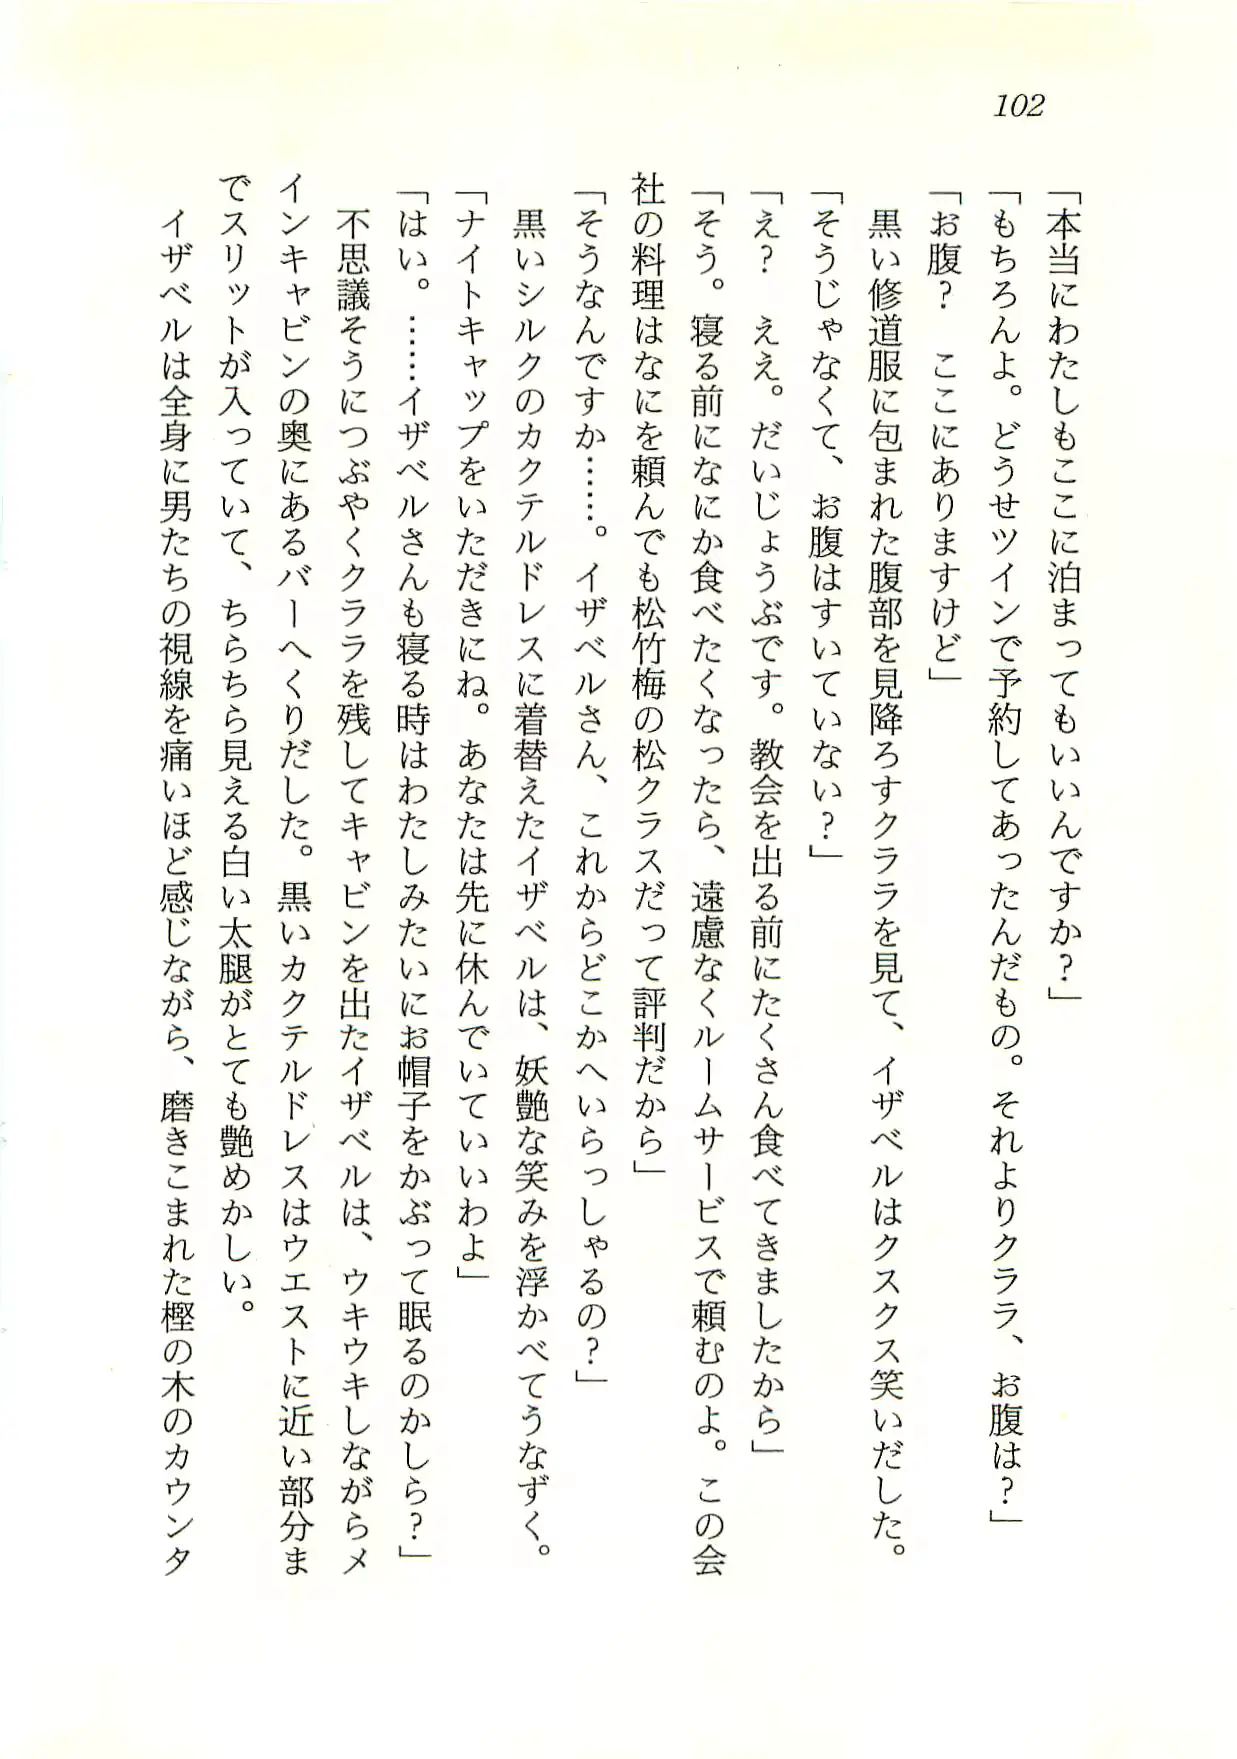 102
「本当にわたしもここに泊まってもいいんですか？」
「もちろんよ。どうせツインで予約してあったんだもの。それよりクララ、お腹は？」
「お腹？　ここにありますけど」
　黒い修道服に包まれた腹部を見降ろすクララを見て、イザベルはクスクス笑いだした。
「そうじゃなくて、お腹はすいていない？」
「え？　ええ。だいじょうぶです。教会を出る前にたくさん食べてきましたから」
「そう。寝る前になにか食べたくなったら、遠慮なくルームサービスで頼むのよ。この会
社の料理はなにを頼んでも松竹梅の松クラスだって評判だから」
「そうなんですか……。イザベルさん、これからどこかへいらっしゃるの？」
　黒いシルクのカクテルドレスに着替えたイザベルは、妖艶な笑みを浮かべてうなずく。
「ナイトキャップをいただきにね。あなたは先に休んでいていいわよ」
「はい。……イザベルさんも寝る時はわたしみたいにお帽子をかぶって眠るのかしら？」
　不思議そうにつぶやくクララを残してキャビンを出たイザベルは、ウキウキしながらメ
インキャビンの奥にあるバーへくりだした。黒いカクテルドレスはウエストに近い部分ま
でスリットが入っていて、ちらちら見える白い太腿がとても艶めかしい。
　イザベルは全身に男たちの視線を痛いほど感じながら、磨きこまれた樫の木のカウンタ